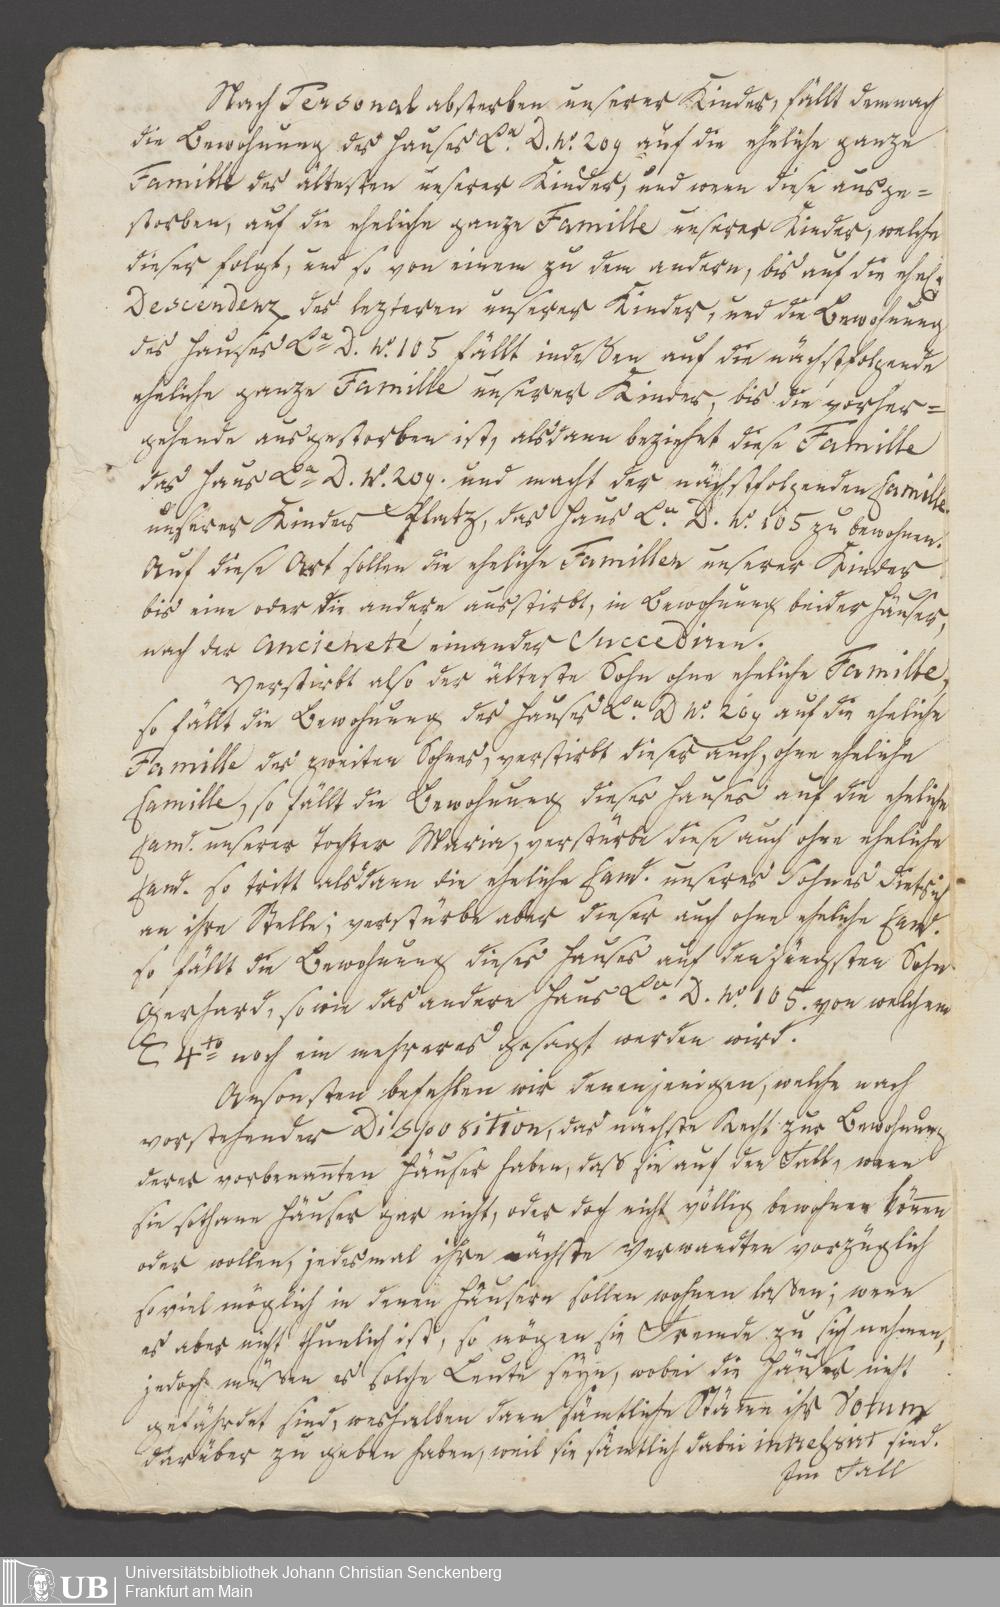 Nach Personal absterben unserer Kinder, fällt demnach
die Bewohnung des Hauses La. D. No. 209 auf die eheliche ganze
Famille des ältesten unserer Kinder, und wenn diese ausge=
storben, auf die eheliche ganze Famille unserer Kinder, welche
dieser folgt, und so von einem zu dem andern, bis auf die ehel:
Descendenz des lezteren unserer Kinder, und die Bewohnung
des Hauses La D. No. 105 fällt indeßen auf die nächstfolgende
eheliche ganze Famille unserer Kinder, bis die vorher=
gehende ausgestorben ist, alsdann beziehet diese Famille
das Haus La D. No. 209. und macht der nächstfolgenden Famille
unserer Kinder Platz, das Haus La. D. No. 105 zu bewohnen.
Auf diese Art sollen die eheliche Famillen unserer Kinder
bis eine oder die andere ausstirbt, in Bewohnung beider Häuser,
nach der Ancieneté einander Succediren.
Verstirbt also der älteste Sohn ohne eheliche Famille,
so fällt die Bewohnung des Hauses La. D No. 209 auf die eheliche
Famille des zweiten Sohnes, verstirbt dieser auch, ohne eheliche
Famille, so fällt die Bewohnung dieses Hauses auf die eheliche
Fam. unserer Tochter Maria, verstürbe diese auch ohne eheliche
Fam. so tritt alsdann die eheliche Fam. unseres Sohnes Dietrich
an ihre Stelle; verstürbe aber dieser auch ohne eheliche Fam.
so fällt die Bewohnung dieses Hauses auf den jüngsten Sohn
Gerhard, so wie das andere Haus La. D. No. 105. von welchem
4to noch ein mehreres gesagt werden wird.
Ansonsten befehlen wir denenjenigen, welche nach
vorstehender Disposition, das nächste Recht zur Bewohnung
derer vorbenannten Häuser haben, daß sie auf den Fall, wenn
sie sothane Häuser gar nicht, oder doch nicht völlig bewohnen können
oder wollen, jedesmal ihre nächste Verwandten vorzüglich
soviel möglich in denen Häusern sollen wohnen laßen; wenn
es aber nicht thunlich ist, so mögen sie Fremde zu sich nehmen,
jedoch müßen es solche Leute seyn, wobei die Häuser nicht
gefährdet sind, weshalben dann sämtliche Stämme ihr Votum
darüber zu geben haben, weil sie sämtlich dabei intreßirt sind.
Im Fall
UB
Universitätsbibliothek Johann Christian Senckenberg
Frankfurt am Main